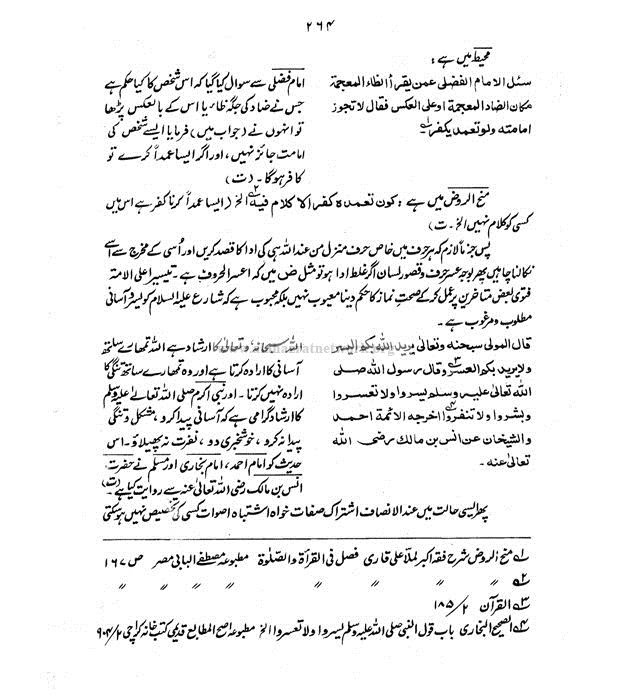 ۲۶۴
محیط میں ہے :
سئل الامام الفضلی عمن یقرأ الظاء المعجمة
مکان الضاد المعجمة اوعلی العکس فقال لا تجوز
امامته ولو تعمد یکفر۱
امام فضلی سے سوال کیا گیا کہ اس شخص کا کیا حکم ہے
جس نے ضاد کی جگہ ظاء یا اس کے بالعکس پڑھا
تو انہوں نے (جواب میں) فرمایا ایسے شخص کی
امامت جائز نہیں، اور اگر ایسا عمداً کرے تو
کافر ہوگا۔ (ت)
منح الروض میں ہے : کون تعمدہ کفرا لا کلام فیه۲ الخ (ایسا عمداً کرنا کفر ہے اس میں
کسی کو کلام نہیں الخ۔ ت)
پس جزماً لازم کہ ہر حرف میں خاص حرف منزل من عند اللہ ہی کی ادا کا قصد کریں اور اُسی کے مخرج سے اُسے
نکالنا چاہیں پھر بوجہ عسر حرف و قصور لسان اگر غلط ادا ہو تو مثل ض میں کہ اعسر الحروف ہے۔ تیسیرا علی الامة
فتوی بعض متاخرین پر عمل کرکے صحتِ نماز کا حکم دینا معیوب نہیں بلکہ محبوب ہے کہ شارع علیہ السلام کو یسر و آسانی
مطلوب و مرغوب ہے۔
قال المولی سبحنه وتعالیٰ یرید الله بکم الیسر
ولا یرید بکم العسر۳ وقال رسول الله صلی
الله تعالیٰ علیہ وسلم یسروا ولا تعسروا
وبشروا ولا تنفروا۴ اخرجه الائمة احمد
والشیخان عن انس بن مالک رضی الله
تعالیٰ عنه۔
اللہ سبحانہ وتعالیٰ کا ارشاد ہے اللہ تمھارے ساتھ
آسانی کا ارادہ کرتا ہے اور وہ تمھارے ساتھ تنگی کا
ارادہ نہیں کرتا۔ اور نبی اکرم صلی اللہ تعالےٰ علیہ وسلم
کا ارشاد گرامی ہے کہ آسانی پیدا کرو، مشکل و تنگی
پیدا نہ کرو، خوشخبری دو، نفرت نہ پھیلاؤ۔ اس
حدیث کو امام احمد، امام بخاری اور مسلم نے حضرت
انس بن مالک رضی اللہ تعالیٰ عنہ سے روایت کیا ہے۔ (ت)
پھر ایسی حالت میں عند الانصاف اشتراک صفات خواہ اشتباہ اصوات کسی کی تخصیص نہیں ہوسکتی
۱ منح الروض شرح فقہ اکبر لملّا علی قاری فصل فی القرأة والصّلٰوة مطبوعہ مصطفےٰ البابی مصر ص ۱۶۷
۲ " " " " " " " "
۳ القرآن ۲/۱۸۵
۴ الصحیح البخاری باب قول النبی صلی اللہ علیہ وسلم یسروا ولا تعسروا الخ مطبوعہ اصح المطابع قدیمی کتب خانہ کراچی ۲/۹۰۴